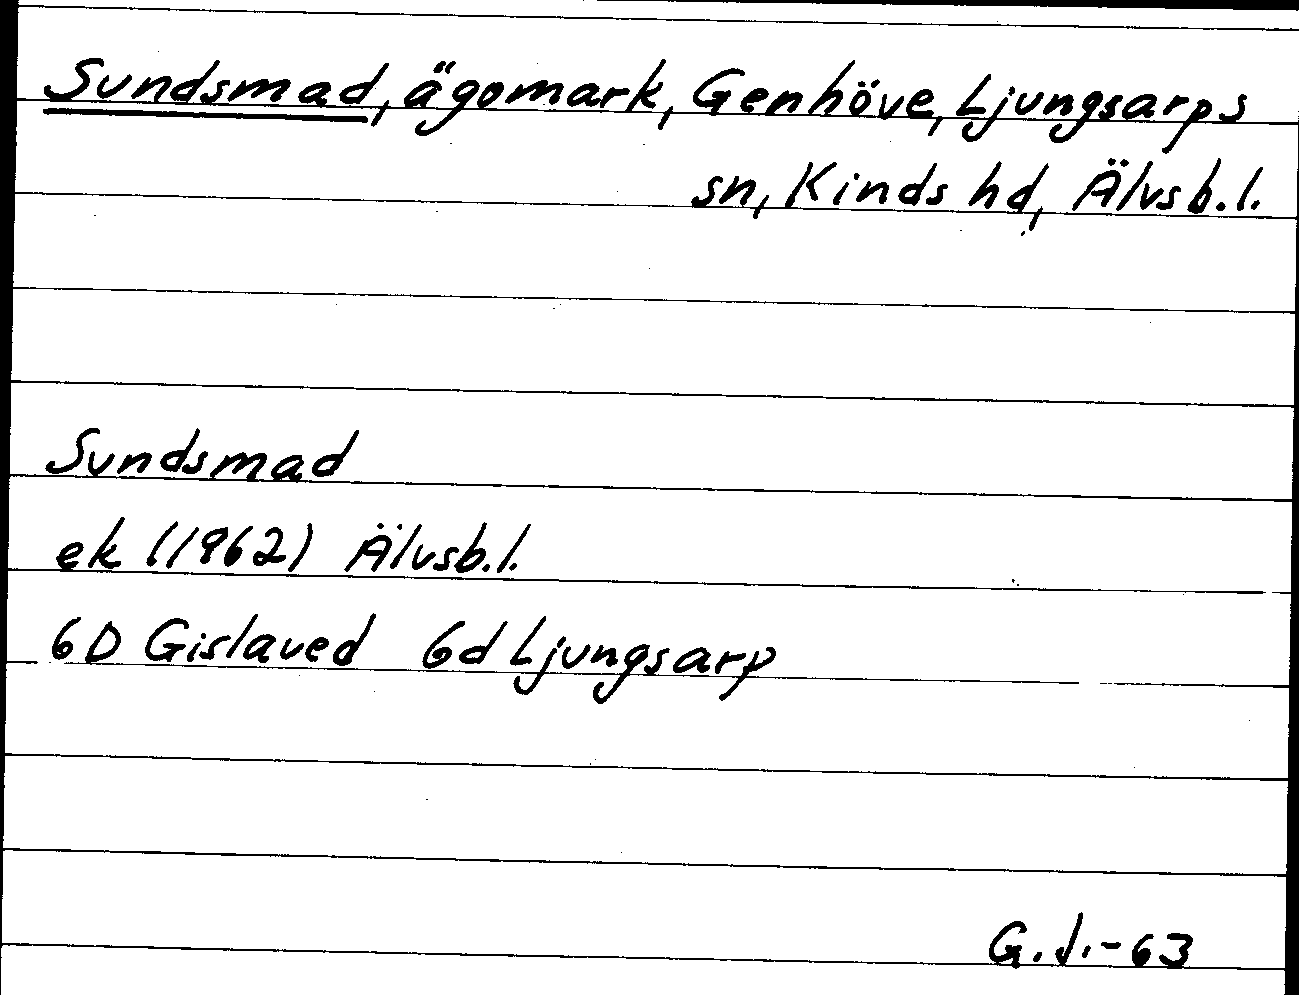 Sundsmad, ägomark, Genhöve, Ljungsarps
sn, Kinds hd, Älvsb.l.
Sundsmad
ek (1962) Älvsb.l.
6D Gislaved 6d Ljungsarp
G.J.-63